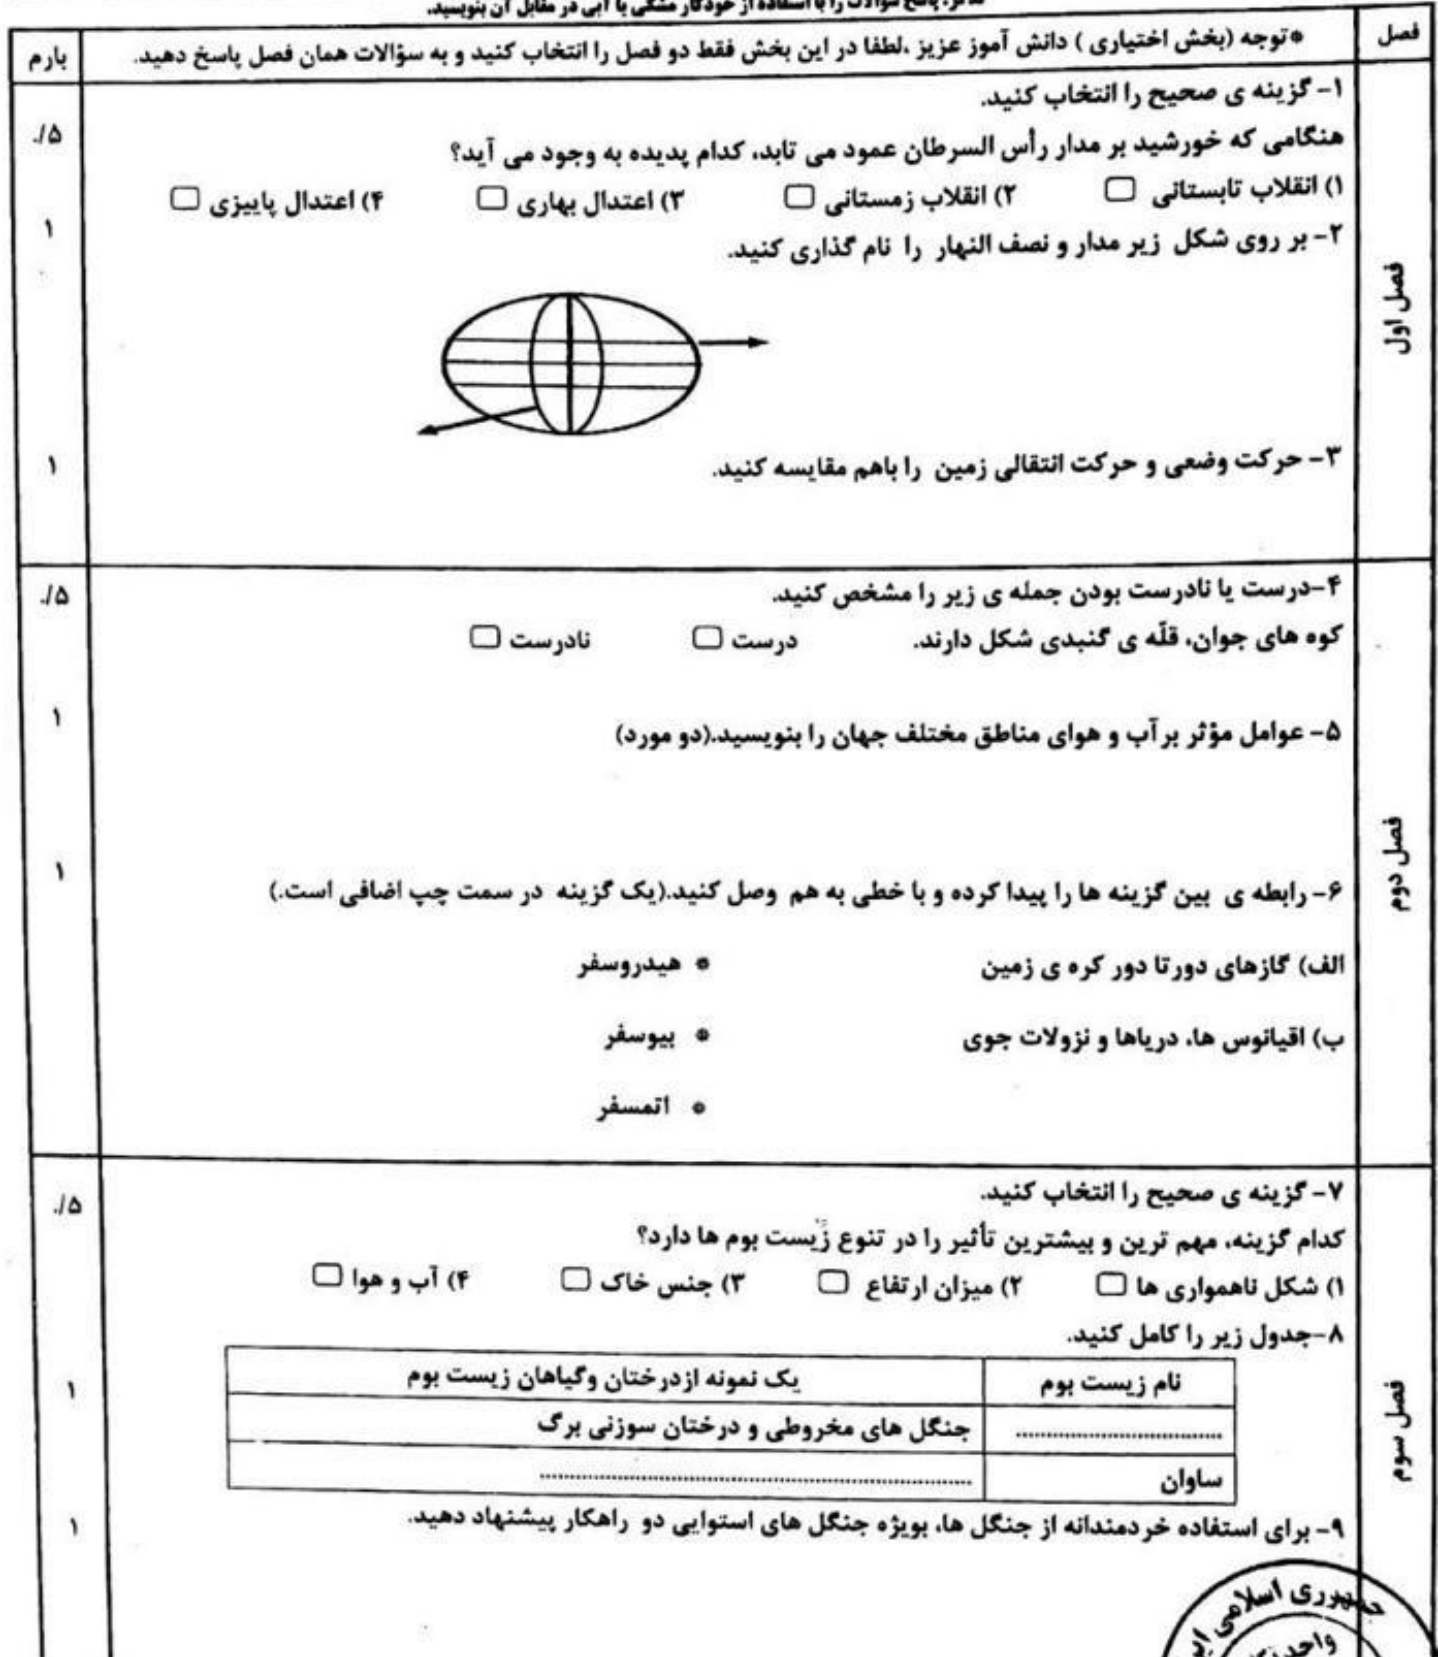 تذکر: پاسخ سؤالات را با استفاده از خودکار مشکی یا آبی در مقابل آن بنویسید.
فصل
*توجه (بخش اختیاری ) دانش آموز عزیز ،لطفا در این بخش فقط دو فصل را انتخاب کنید و به سؤالات همان فصل پاسخ دهید.
بارم
فصل اول
۱- گزینه ی صحیح را انتخاب کنید.
هنگامی که خورشید بر مدار رأس السرطان عمود می تابد، کدام پدیده به وجود می آید؟
۵/.
۱) انقلاب تابستانی ۲) انقلاب زمستانی ۳) اعتدال بهاری ۴) اعتدال پاییزی
۲- بر روی شکل زیر مدار و نصف النهار را نام گذاری کنید.
۱
۳- حرکت وضعی و حرکت انتقالی زمین را باهم مقایسه کنید.
۱
فصل دوم
۴-درست یا نادرست بودن جمله ی زیر را مشخص کنید.
۵/.
کوه های جوان، قلّه ی گنبدی شکل دارند. درست نادرست
۵- عوامل مؤثر برآب و هوای مناطق مختلف جهان را بنویسید.(دو مورد)
۱
۶- رابطه ی بین گزینه ها را پیدا کرده و با خطی به هم وصل کنید.(یک گزینه در سمت چپ اضافی است.)
۱
الف) گازهای دورتا دور کره ی زمین * هیدروسفر
ب) اقیانوس ها، دریاها و نزولات جوی * بیوسفر
* اتمسفر
فصل سوم
۷- گزینه ی صحیح را انتخاب کنید.
۵/.
کدام گزینه، مهم ترین و بیشترین تأثیر را در تنوع زیست بوم ها دارد؟
۱) شکل ناهمواری ها ۲) میزان ارتفاع ۳) جنس خاک ۴) آب و هوا
۸-جدول زیر را کامل کنید.
۱
نام زیست بوم یک نمونه ازدرختان وگیاهان زیست بوم
................................ جنگل های مخروطی و درختان سوزنی برگ
ساوان ....................................................................
۹- برای استفاده خردمندانه از جنگل ها، بویژه جنگل های استوایی دو راهکار پیشنهاد دهید.
۱
جمهوری اسلامی
واحد